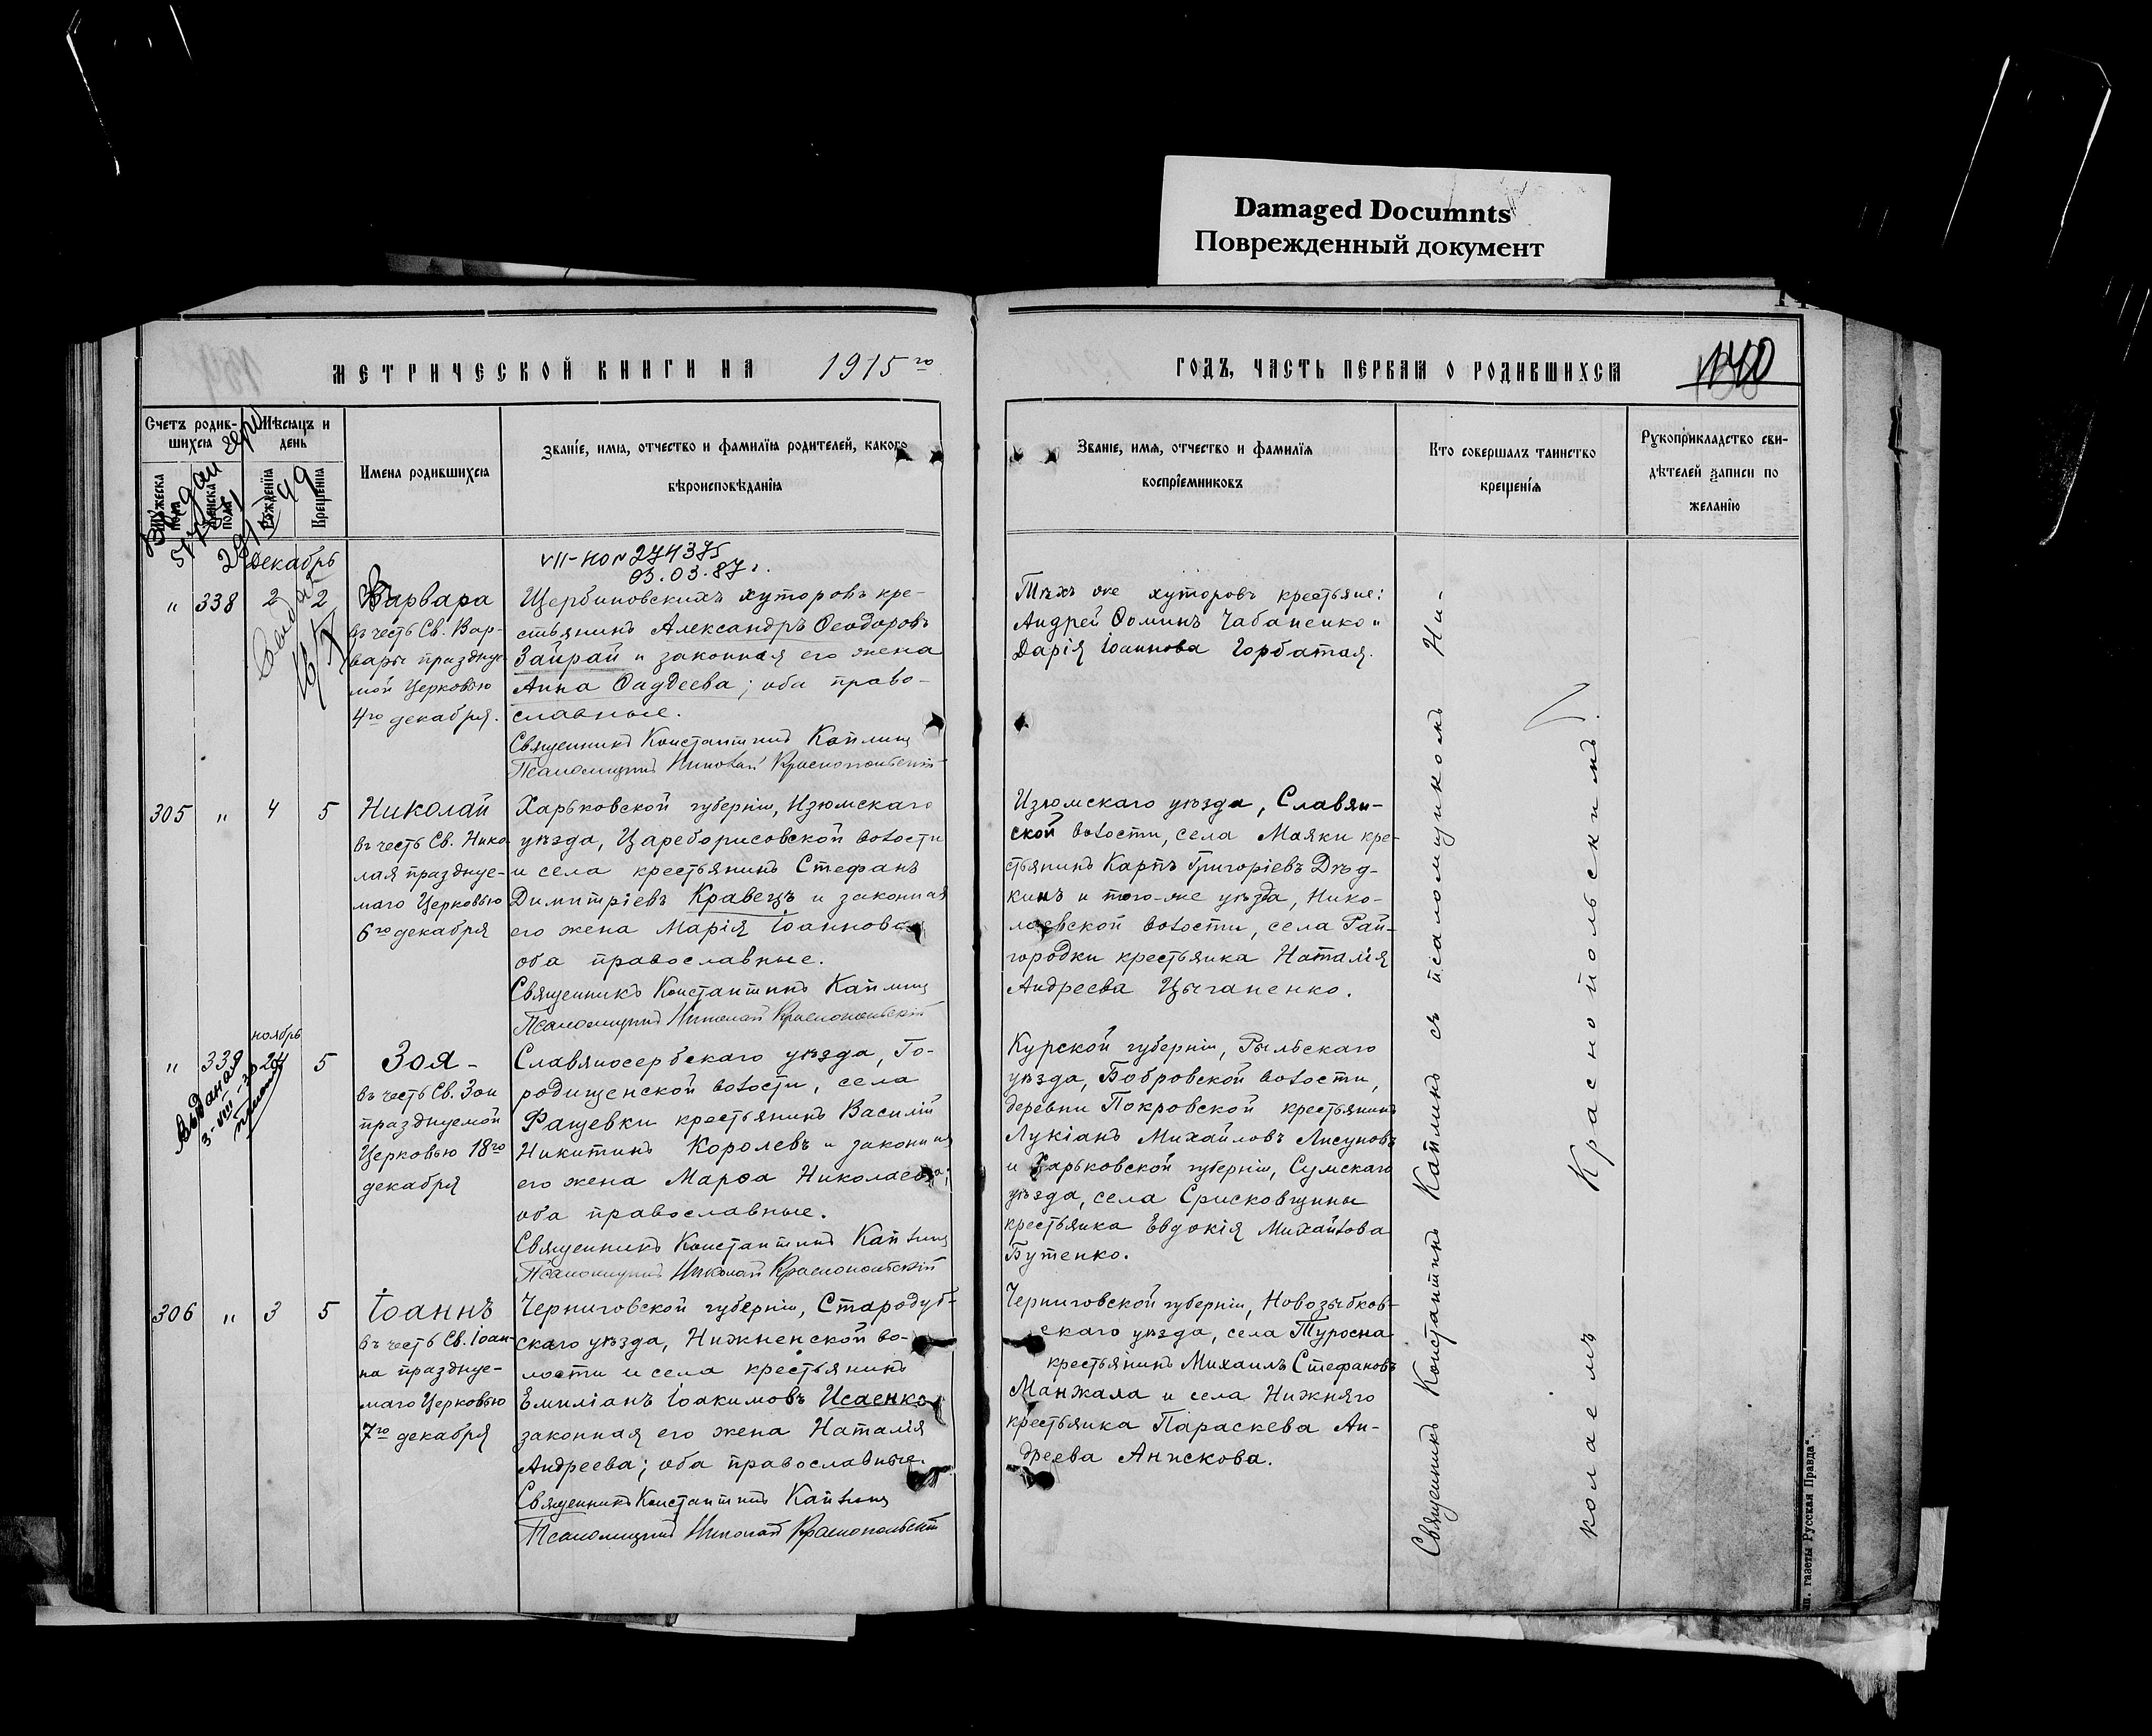 Damaged Documnts
Поврежденный документ
МЕТРИЧЕСКОЙ КНИГИ НА 1915го
ГОДЪ, ЧАСТЬ ПЕРВАЯ О РОДИВШИХСЯ
140
Счетъ родив-
шихся
Мѣсяцъ и
день
Мужеска
пола
Женска
пола
Рожденія
Крещенія
Имена родившихся
Званіе, имя, отчество и фамилія родителей, какого
вѣроисповѣданія
Званіе, имя, отчество и фамилія
воспріемниковъ
Кто совершалъ таинство
крещенія
Рукоприкладство сви-
дѣтелей записи по
желанію
Декабрь
274375
03.03.87г.
" 338 2 2
Варвара
въ честь Св. Вар-
вары праздnуе-
мой Церковью
4го декабря.
Щербиновскихъ хуторовъ кре-
стьянинъ Александръ Ѳеодоровъ
Зайрай и законная его жена
Анна Ѳаддеева; оба право-
славные.
Священникъ Константинъ Каплинъ
Псаломщикъ Николай Краснопольскій
Тѣхъ же хуторовъ крестьяне:
Андрей Ѳоминъ Чабаненко и
Дарія Іоаннова Горбатая.
305 " 4 5
Николай
въ честь Св. Нико-
лая празднуе-
маго Церковью
6го декабря
Харьковской губерніи, Изюмскаго
уѣзда, Цареборисовской волости
и села крестьянинъ Стефанъ
Димитріевъ Кравецъ и законная
его жена Марія Іоаннова
оба православные.
Священникъ Константинъ Каплинъ
Псаломщикъ Николай Краснопольскій
Изюмскаго уѣзда, Славян-
ской волости, села Маяки кре-
стьянинъ Карпъ Григоріевъ Дѣд-
кинъ и того-же уѣзда, Нико-
лаевской волости, села Рай-
городки крестьянка Наталія
Андреева Цыганенко.
ноябрь
" 339 24 5
Зоя -
въ честь Св. Зои
празднуемой
Церковью 18го
декабря
Славяносербскаго уѣзда, Го-
родищенской волости, села
Фащевки крестьянинъ Василій
Никитинъ Королевъ и законная
его жена Марѳа Николаева;
оба православные.
Священникъ Константинъ Каплинъ
Псаломщикъ Николай Краснопольскій
Курской губерніи, Рыльскаго
уѣзда, Бобровской волости,
деревни Покровской крестьянинъ
Лукіанъ Михайловъ Лисуновъ
и Харьковской губерніи, Сумскаго
уѣзда, села
крестьянка Евдокія Михайлова
Бутенко.
306 " 3 5
Іоаннъ
въ честь Св. Іоан-
на празднуе-
маго Церковью
7го декабря
Черниговской губерніи, Стародуб-
скаго уѣзда, Нижненской во-
лости и села крестьянинъ
Емиліанъ Іоакимовъ Исаенко
законная его жена Наталія
Андреева; оба православные.
Священникъ Константинъ Каплинъ
Псаломщикъ Николай Краснопольскій
Черниговской губерніи, Новозыбков-
скаго уѣзда, села Туросна
крестьянинъ Михаилъ Стефановъ
Манжала и села Нижняго
крестьянка Параскева Ан-
дреева Анискова.
Священникъ Константинъ Каплинъ съ псаломщикомъ Ни-
колаемъ Краснопольскимъ.
газеты Русская Правда".